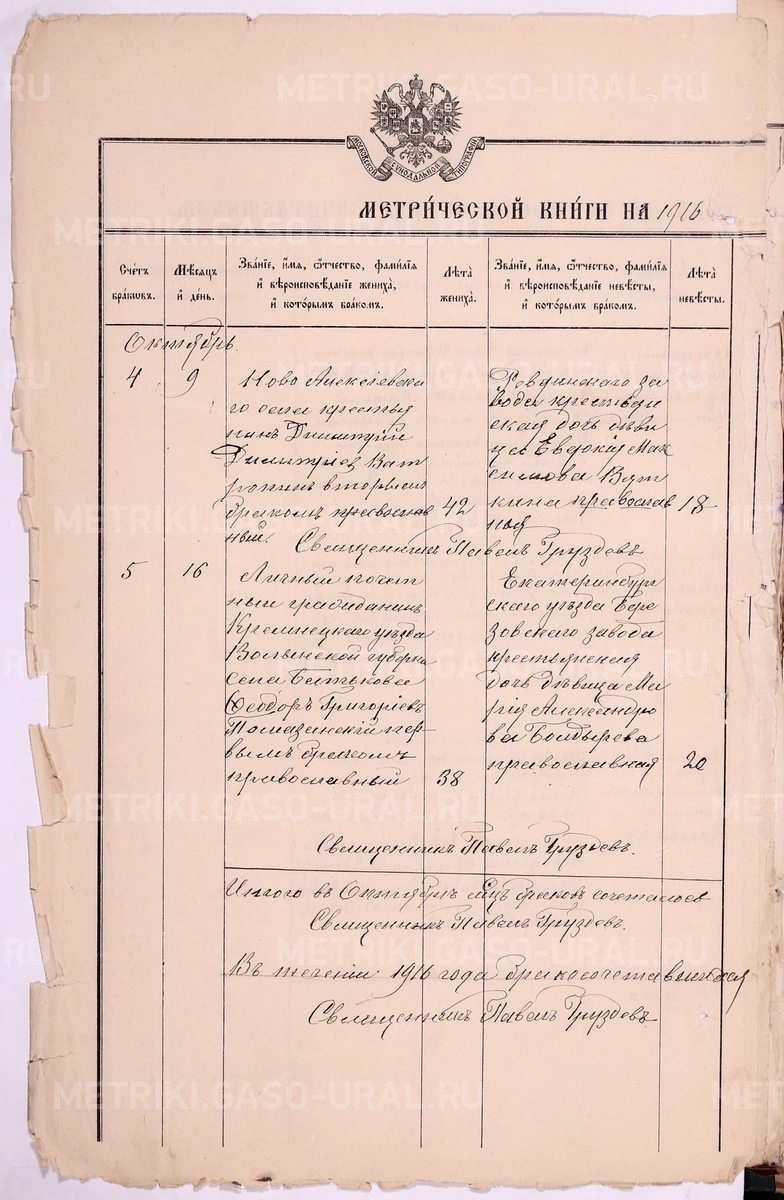 МОСКОВСКОЙ СѴНОДАЛЬНОЙ ТИПОГРАФІИ
МЕТРИ́ЧЕСКОЙ КНИ́ГИ НА 1916
Сче́тъ бра́кѡвъ.
Мѣ́сяцъ и҆ де́нь.
Зва́нїе, и҆́мя, ѻ҆́тчество, фами́лїя и҆ вѣроисповѣ́данїе жениха̀, и҆ кото́рымъ бра́комъ.
Лѣ́та жениха̀.
Зва́нїе, и҆́мя, ѻ҆́тчество, фами́лїя и҆ вѣроисповѣ́данїе невѣ́сты, и҆ кото́рымъ бра́комъ.
Лѣ́та невѣ́сты.
Октябрь
4
9
Ново Алексѣевска
го села крестья
нинъ Димитрій
Димитріев Ват
ропинъ вторымъ
бракомъ православ
ный.
42
Ревдинскаго за
вода крестьян
ская дочь дѣви
ца Евдокія Мак
симова Вят
кина православ
ная
18
Священникъ Павелъ Груздевъ
5
16
Личный почет
ный гражданинъ
Кременецкаго уѣзда
Волынской губерніи
села Батькова
Ѳеодоръ Григоріевъ
Помазанскій пер-
вымъ бракомъ
православный
38
Екатеринбург
скаго уѣзда Бере
зовскаго завода
крестьянская
дочь дѣвица Ма
рія Александро
ва Болдырева
православная
20
Священникъ Павелъ Груздевъ.
Итого въ Октябрѣ м-цѣ браковъ сочеталось
Священникъ Павелъ Груздевъ.
Въ теченіи 1916 года бракосочетавшихся
Священникъ Павелъ Груздевъ
METRIKI.GASO-URAL.RU